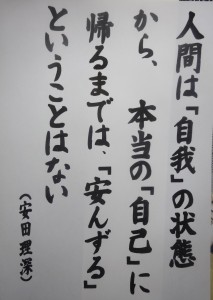 人間は「自我」の状態
から、本当の「自己」に
帰るまでは、「安んずる」
ということはない
(安田理深)